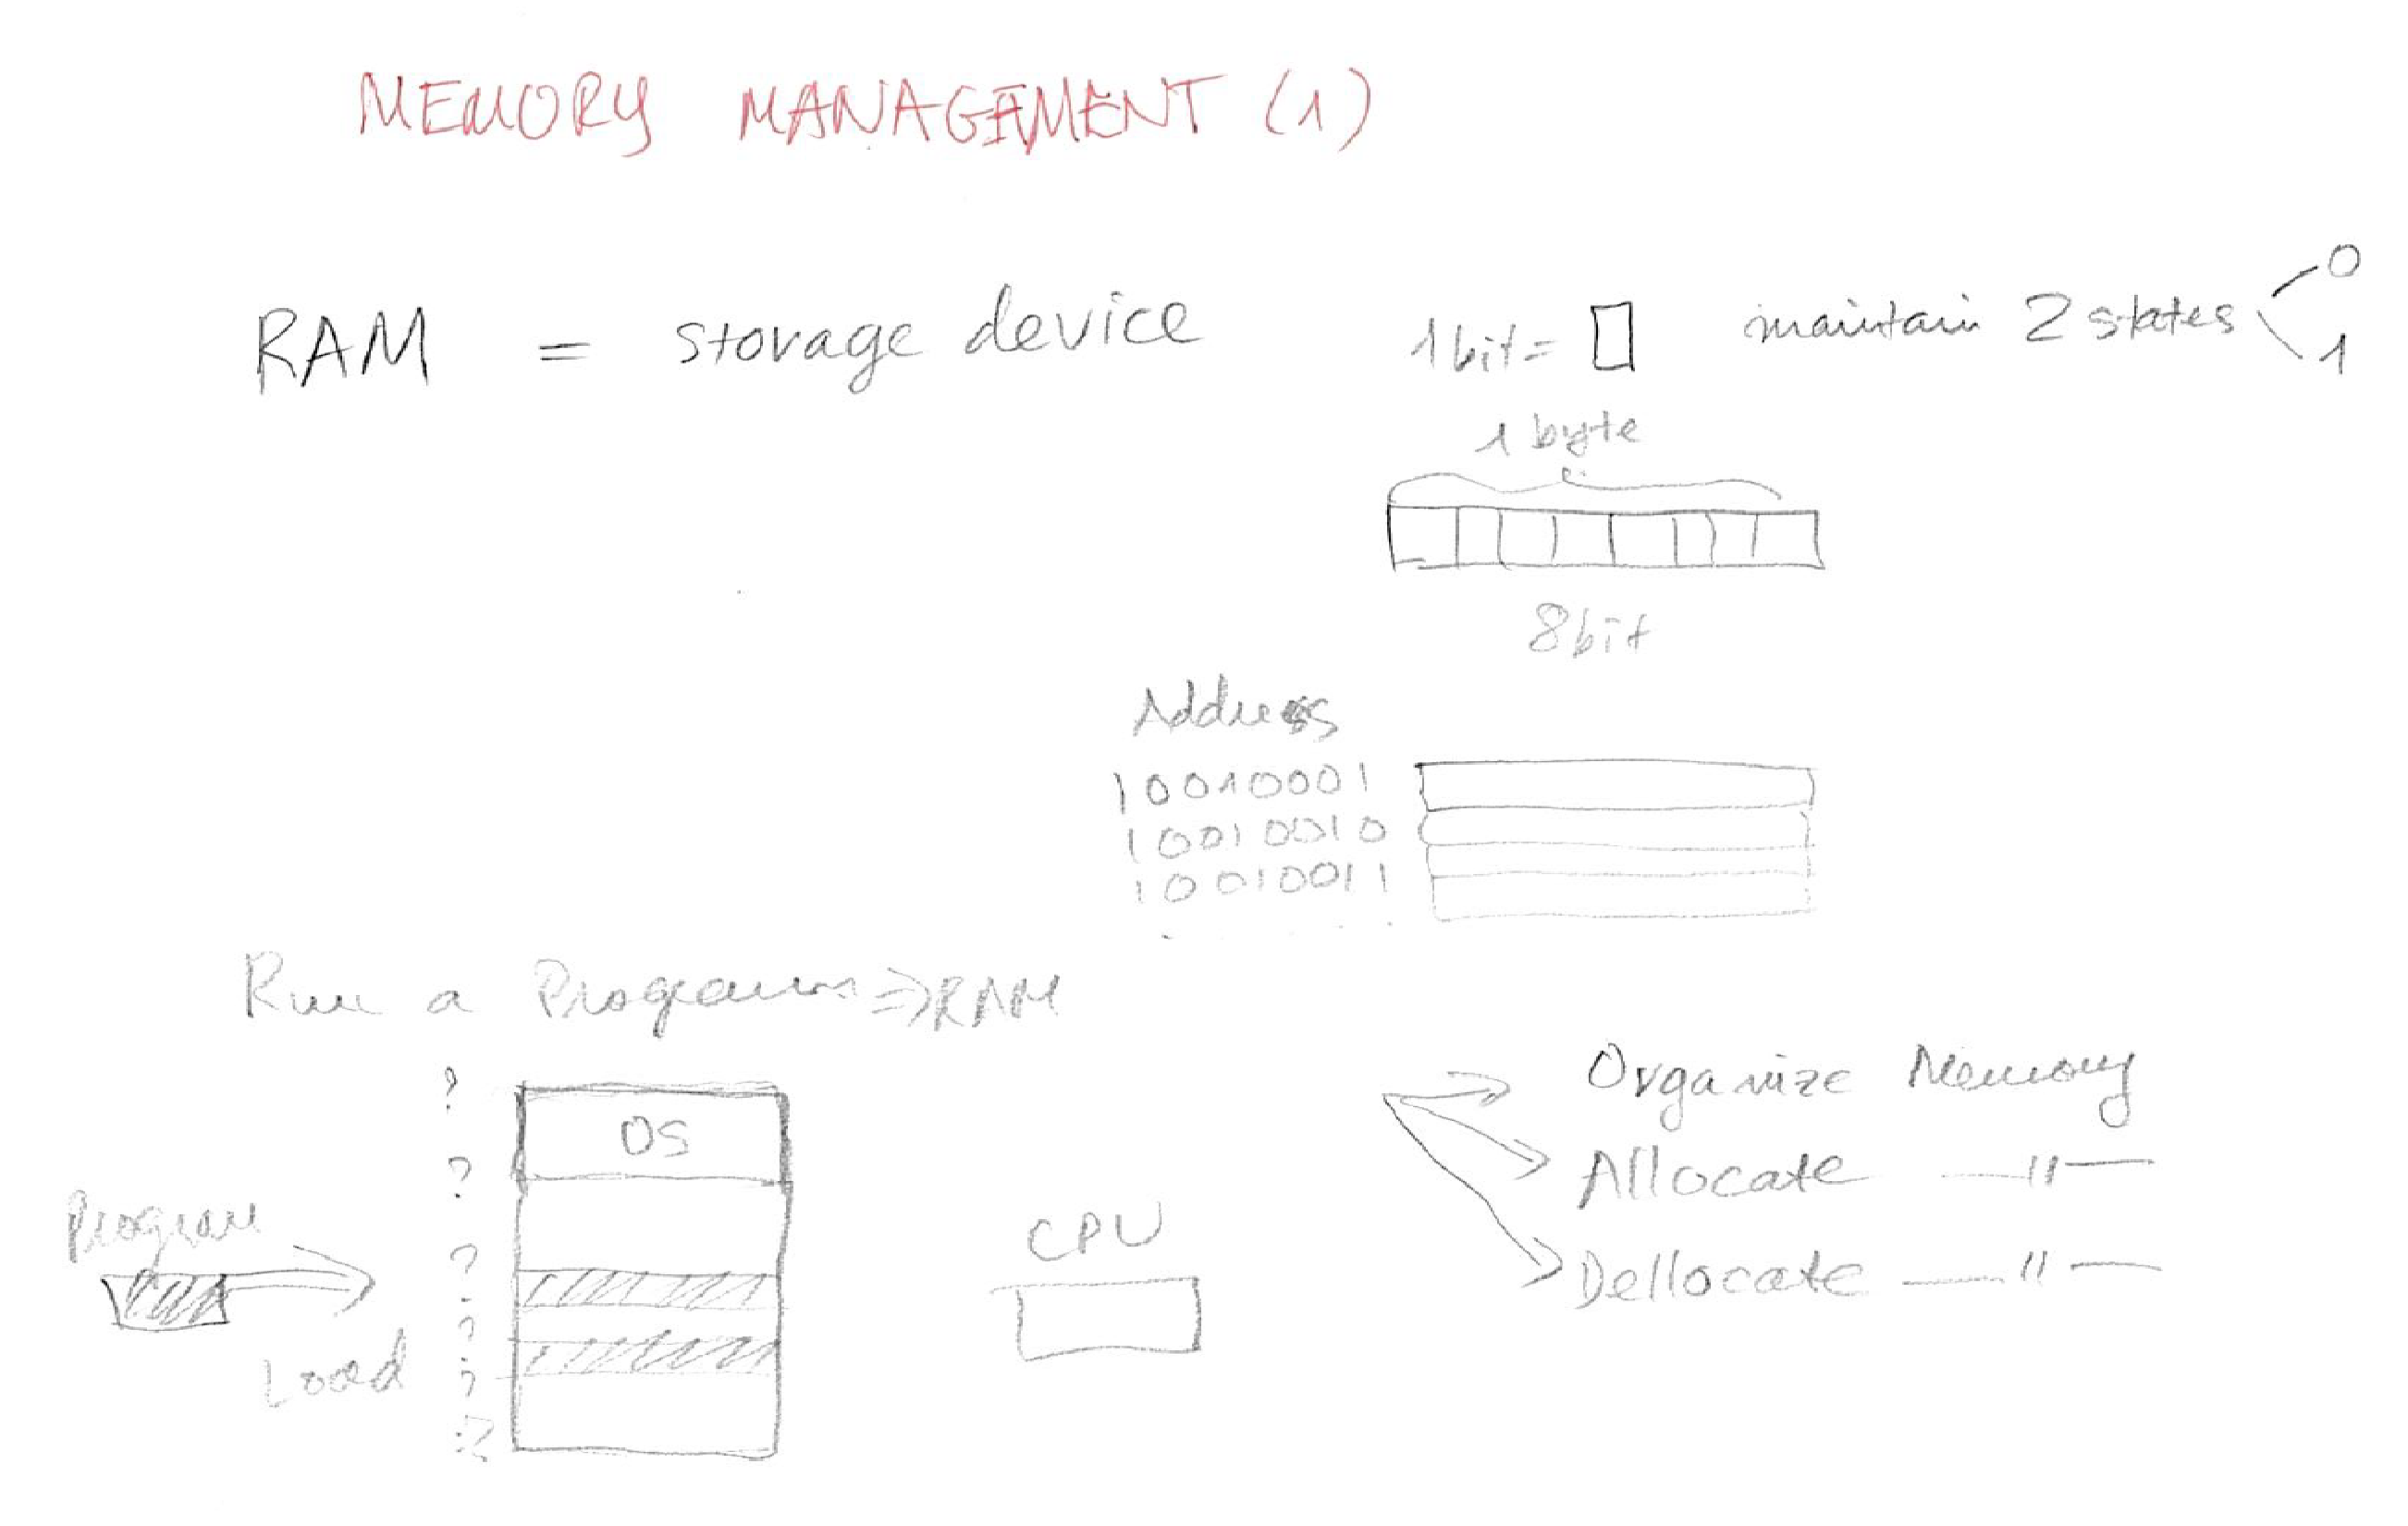 MEMORY MANAGEMENT (1)
RAM = storage device
1 bit = maintain 2 states 0 1
1 byte
8bit
Address
10010001
10010010
10010011
Run a Program => RAM
OS
Program
Load
CPU
Organize Memory
Allocate — " —
Dellocate — " —
? 
?
?
?
?
?